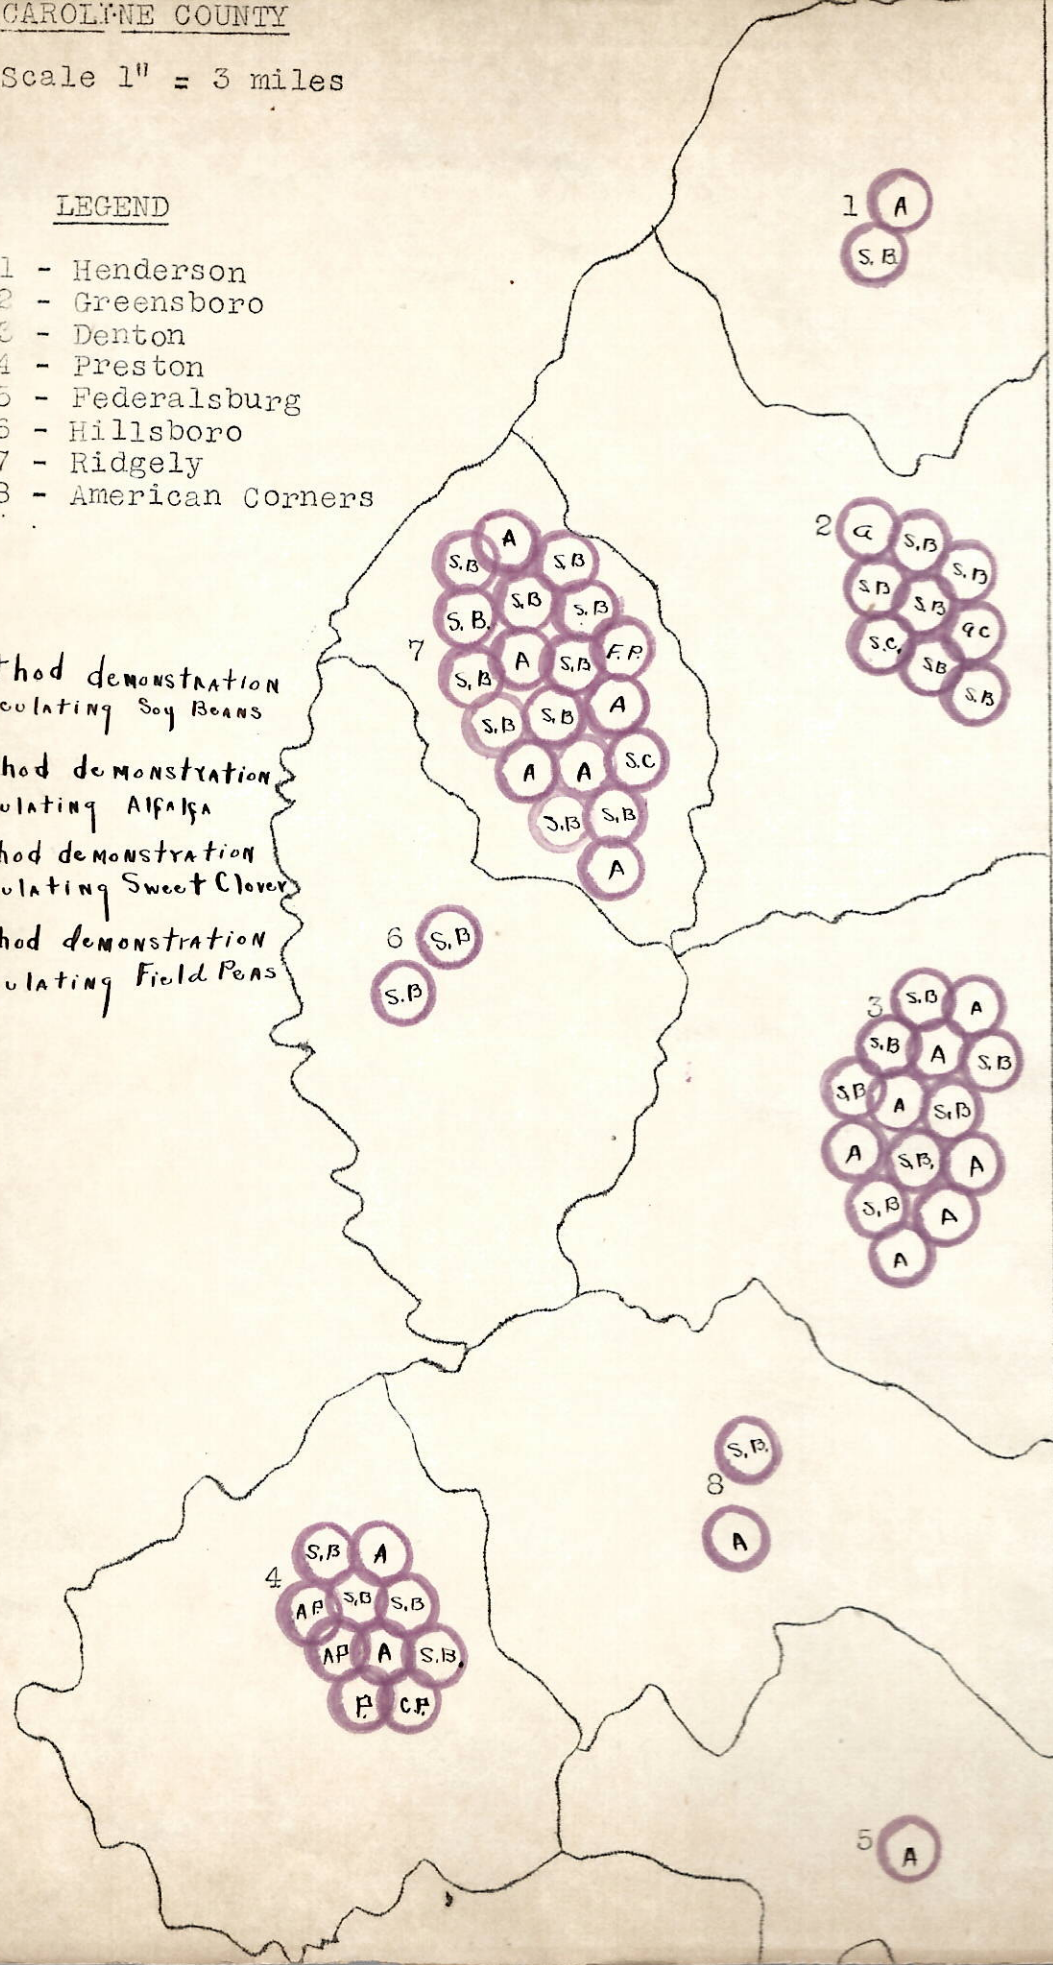 CAROLINE COUNTY
Scale 1" = 3 miles
LEGEND
1 - Henderson
2 - Greensboro
3 - Denton
4 - Preston
5 - Federalsburg
6 - Hillsboro
7 - Ridgely
8 - American Corners
thod demonstration
culating Soy Beans
hod demonstration
ulating Alfalfa
hod demonstration
ulating Sweet Clover
hod demonstration
ulating Field Peas
1 A
S.B.
2 a S.B
S.B
S.B S.B
S.C. a C
S.B
S.B
7 A
S.B S.B
S.B. S.B S.B
S.B A S.B F.P.
S.B S.B A
A A S.C
S.B S.B
A
6 S.B
S.B
3 S.B A
S.B A S.B
S.B A S.B
A S.B. A
S.B A
A
8 S.B.
A
4 S.B A
A P. S.B S.B
A P A S.B.
P. C.P.
5 A